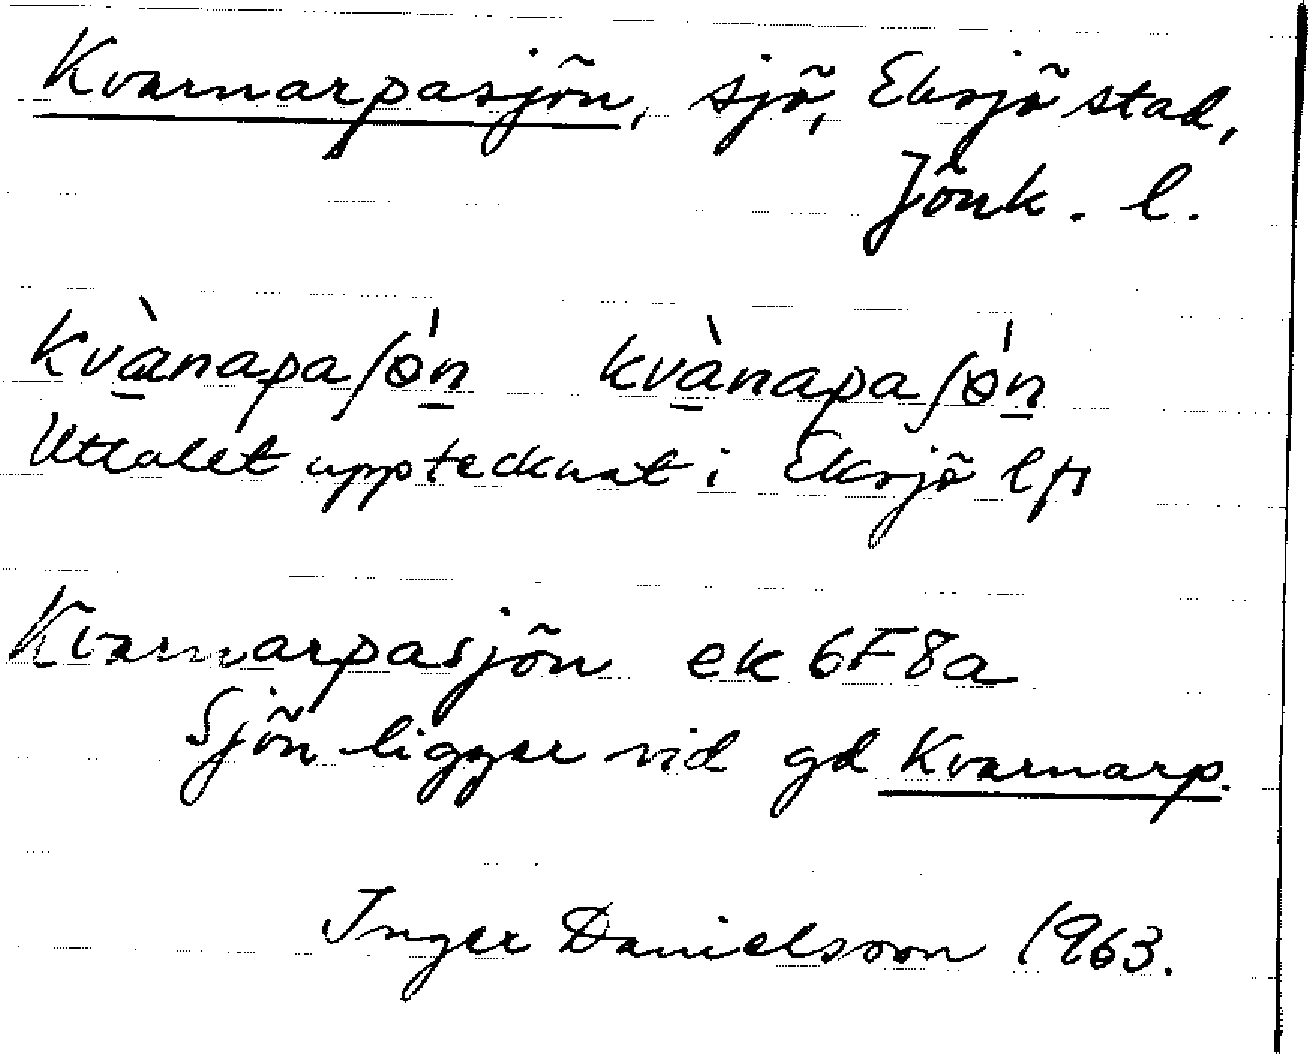 Kvarnarpasjön, sjö, Eksjö stad,
Jönk. l.
kvànapaʃön kvànapaʃön
Uttalet upptecknat i Eksjö lfs
Kvarnarpasjön ek 6F8a
Sjön ligger vid gd Kvarnarp.
Inger Danielsson 1963.